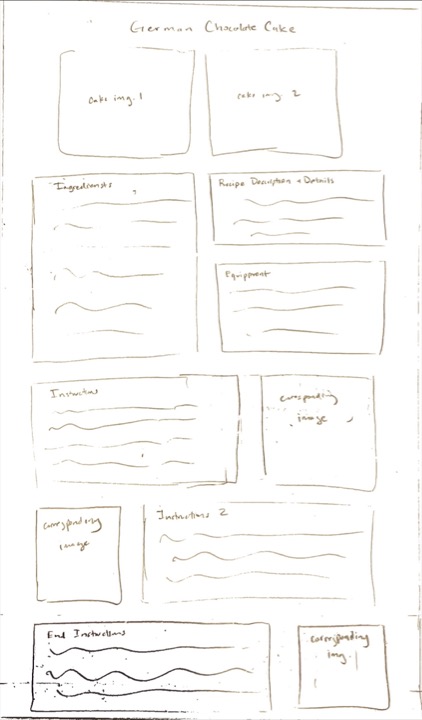 German Chocolate Cake
cake img. 1
cake img. 2
Ingredients
Recipe Description + Details
Equipment
Instructions
corresponding
image
corresponding
image
Instructions 2
End Instructions
corresponding
img.